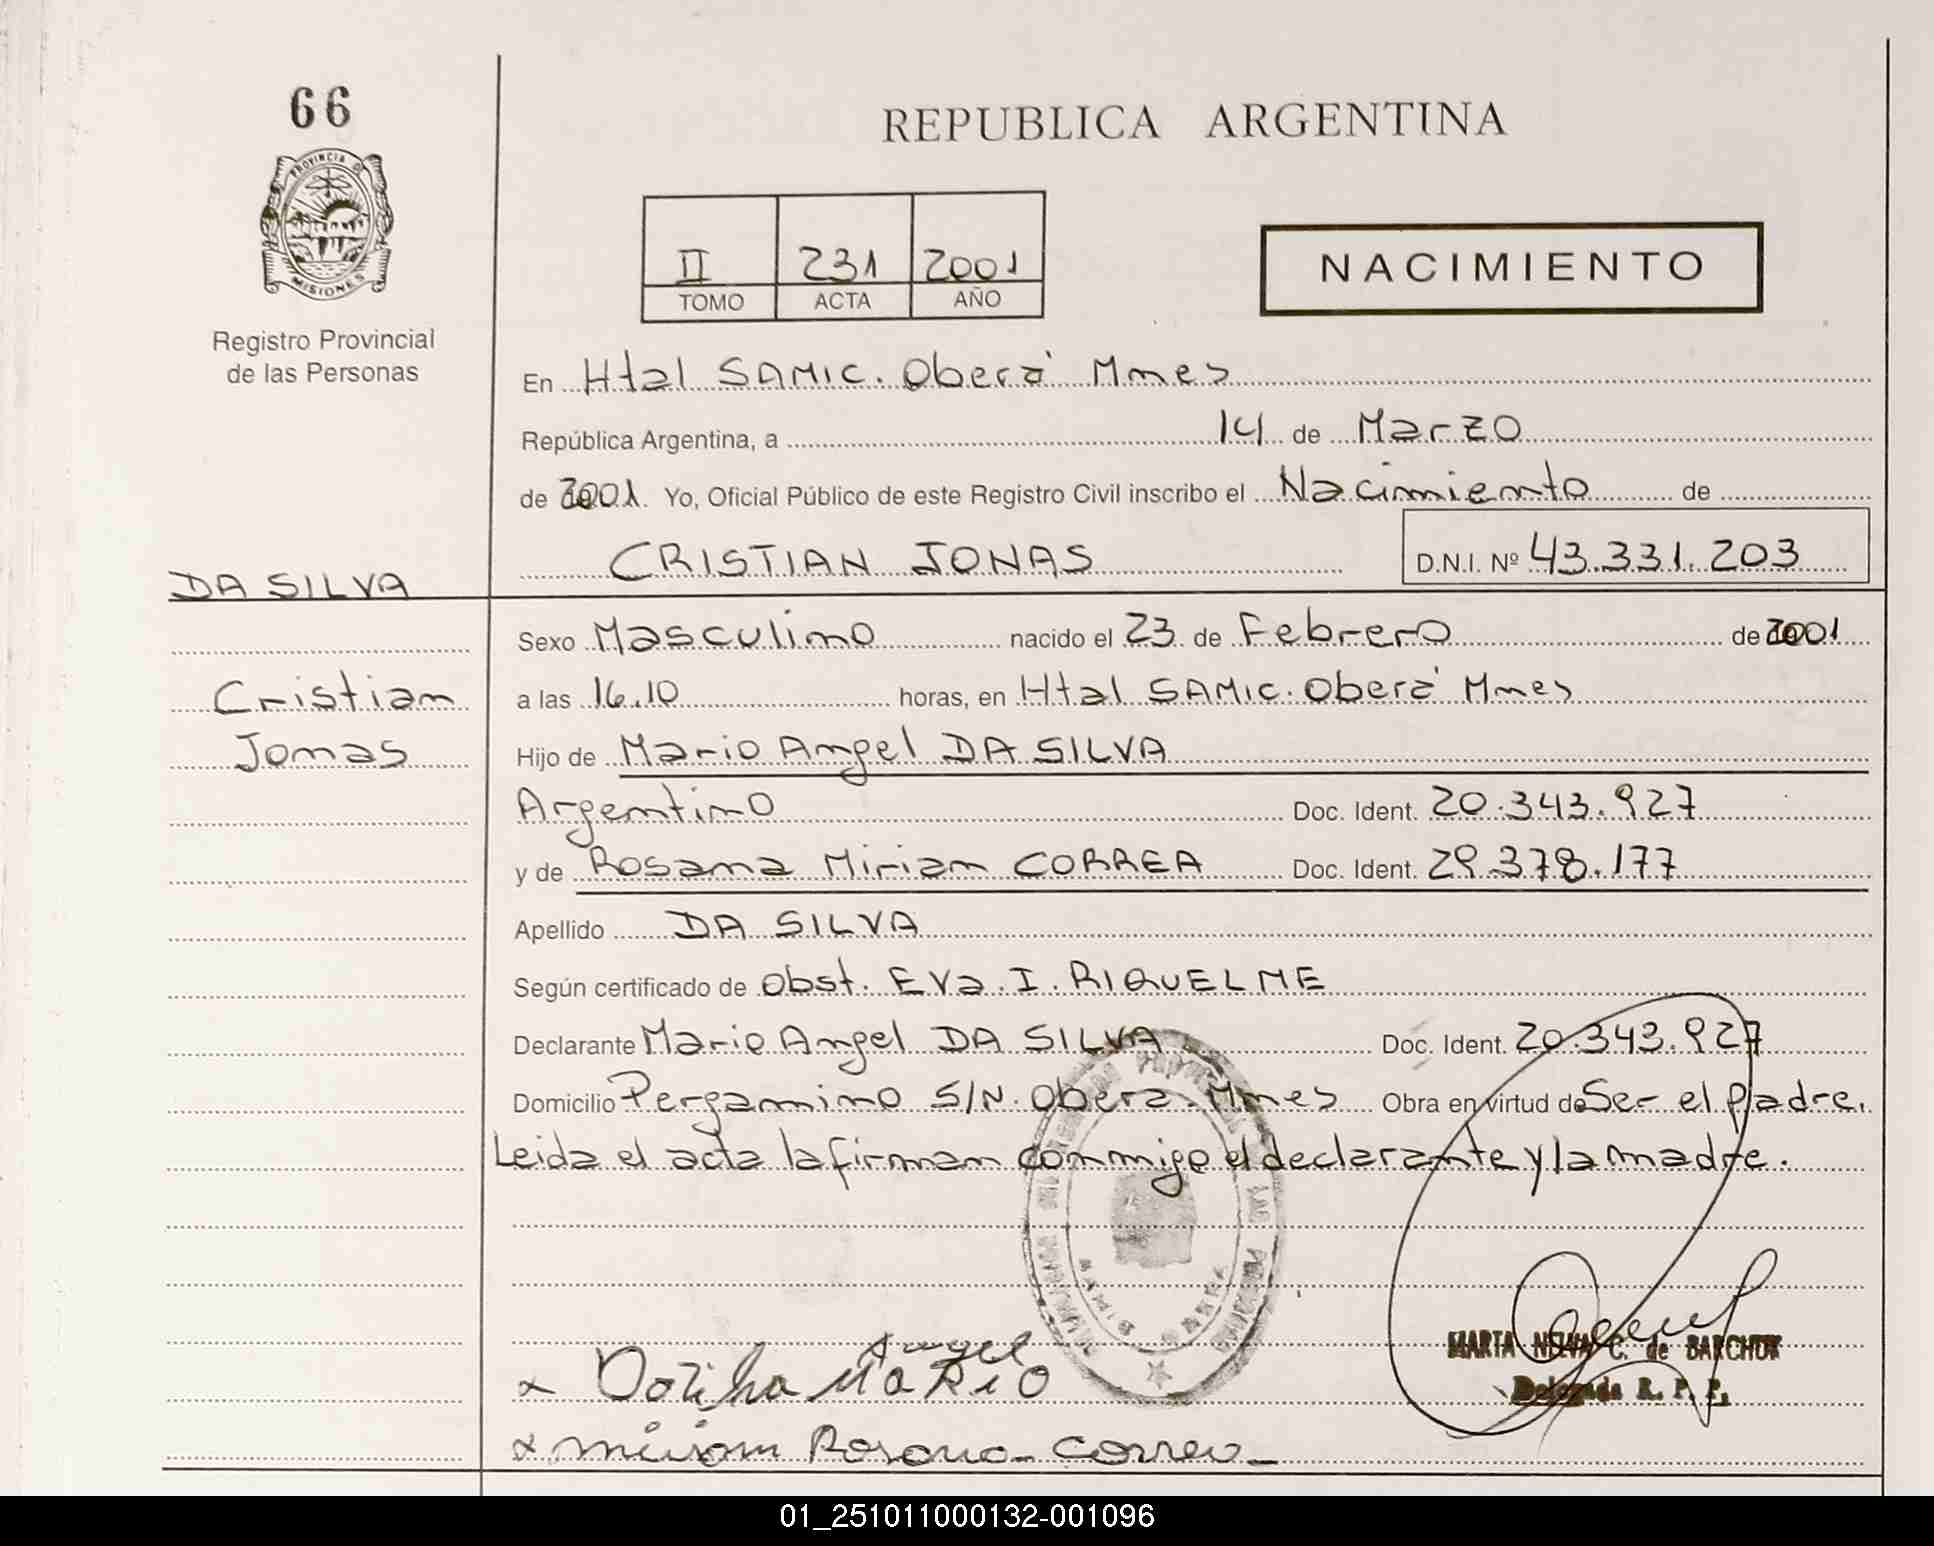 66
PROVINCIA D
MISIONES
Registro Provincial
de las Personas
REPUBLICA ARGENTINA
II 231 2001
TOMO ACTA AÑO
NACIMIENTO
En Htal SAMIC. Oberá Mnes
República Argentina, a 14 de Marzo
de 2001. Yo, Oficial Público de este Registro Civil inscribo el Nacimiento de
CRISTIAN JONAS D.N.I. Nº 43.331.203
DA SILVA
Cristian
Jonas
Sexo Masculino nacido el 23 de Febrero de 2001
a las 16.10 horas, en Htal SAMIC. Oberá Mnes
Hijo de Mario Angel DA SILVA
Argentino Doc. Ident. 20.343.927
y de Rosana Miriam CORREA Doc. Ident. 29.378.177
Apellido DA SILVA
Según certificado de Obst. Eva. I. RIQUELME
Declarante Mario Angel DA SILVA Doc. Ident. 20.343.927
Domicilio Pergamino S/N. Obera. Mnes Obra en virtud de Ser el padre.
Leida el acta la firman conmigo el declarante y la madre.
Angel
MARIO
MARTA NELVA C. de BARCHUK
Delegada R. P. P.
Miriam Rosana Correa
01_251011000132-001096